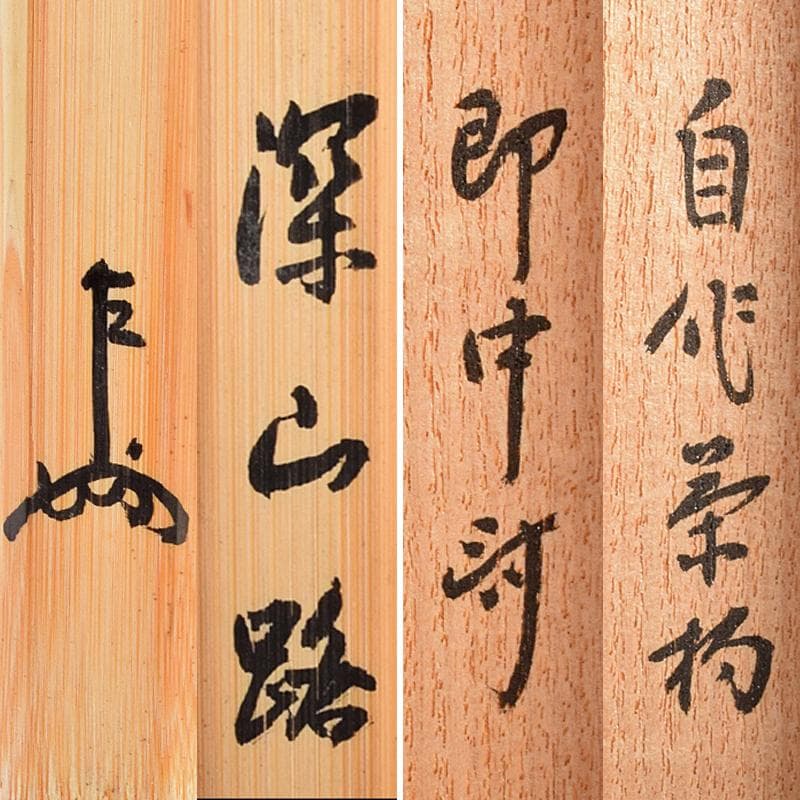 自作茶杓
即中斎
深山路